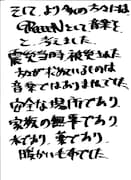 そして、より多くの方々には
GReeeeNとして音楽を
と、考えました。
震災当時、被災された
方々が求めているものは
音楽ではありませんでした。
安全な場所であり、
家族の無事であり
水であり、薬であり、
暖かい毛布でした。